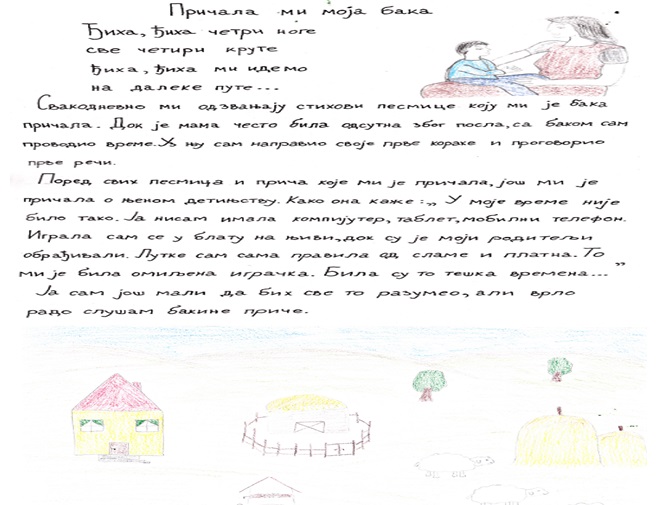 Причала ми моја бака
Ђиха, ђиха четри ноге
све четири круте
ђиха, ђиха ми идемо
на далеке путе...
Свакодневно ми одзвањају стихови песмице коју ми је бака
причала. Док је мама често била одсутна због посла, са баком сам
проводио време. Уз њу сам направио своје прве кораке и проговорио
прве речи.
Поред свих песмица и прича које ми је причала, још ми је
причала о њеном детињству. Како она каже: „ У моје време није
било тако. Ја нисам имала компијутер, таблет, мобилни телефон.
Играла сам се у блату на њиви, док су је моји родитељи
обрађивали. Лутке сам сама правила од сламе и платна. То
ми је била омиљена играчка. Била су то тешка времена... ”
Ја сам још мали да бих све то разумео, али врло
радо слушам бакине приче.